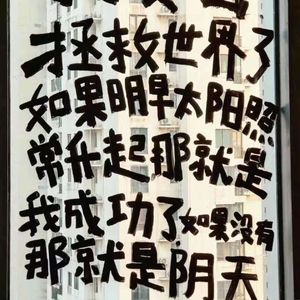 拯救世界了
如果明早太阳照
常升起那就是
我成功了如果没有
那就是阴天